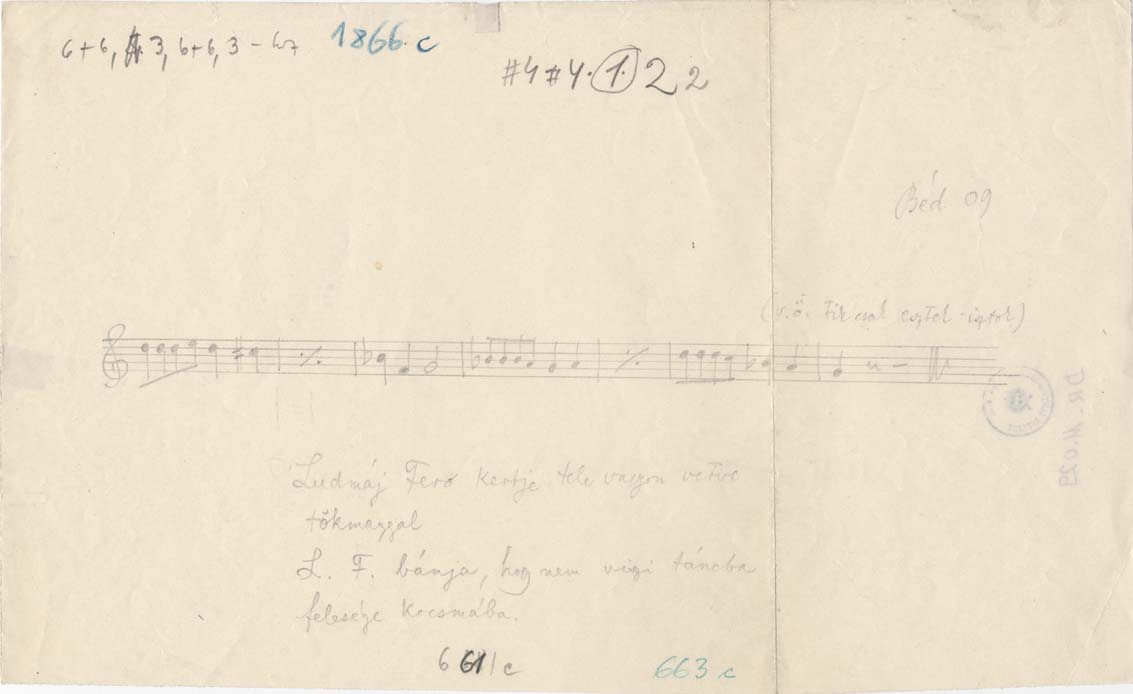 6+6, 3, 6+6, 3 –
1866. c
#4 #4. 1. 2 2
Béd 09
(v.ö. Tik csak egtek-igtok)
Ludmáj Feró kertje tele vagyon vetve
tökmaggal
L. F. bánja, hog nem viszi táncba
felesége kocsmába.
661/c
663 c